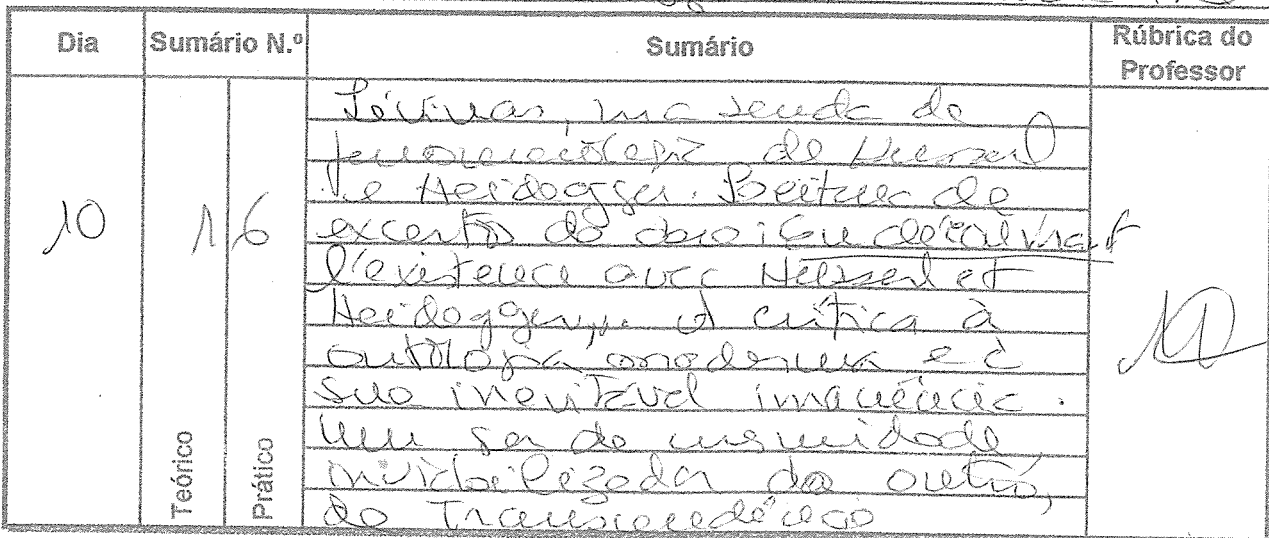 Dia Sumário N.º Sumário Rúbrica do Professor
10 16
Lévinas, na senda da
fenomenologia de Husserl
e Heidegger. Leitura de
excertos da obra "En découvrant
l'existence avec Husserl et
Heidegger". A crítica à
ontologia moderna e à
sua inevitável imanência.
Um ser de mesmidade
inviabilizador do outro,
da Transcendência
Teórico
Prático